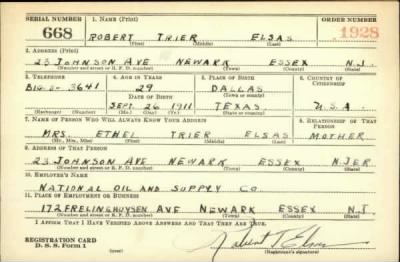 SERIAL NUMBER 1. NAME (Print) ORDER NUMBER
668 ROBERT TRIER ELSAS 1928
(First) (Middle) (Last)
2. ADDRESS (Print)
23 JOHNSON AVE NEWARK ESSEX N.J.
(Number and street or R. F. D. number) (Town) (County) (State)
3. TELEPHONE 4. AGE IN YEARS 5. PLACE OF BIRTH 6. COUNTRY OF CITIZENSHIP
3641 29 DALLAS
DATE OF BIRTH (Town or county)
SEPT. 26 1911 TEXAS U.S.A.
(Exchange) (Number) (Mo.) (Day) (Yr.) (State or country)
7. NAME OF PERSON WHO WILL ALWAYS KNOW YOUR ADDRESS 8. RELATIONSHIP OF THAT PERSON
MRS. ETHEL TRIER ELSAS MOTHER
(Mr., Mrs., Miss) (First) (Middle) (Last)
9. ADDRESS OF THAT PERSON
23 JOHNSON AVE NEWARK ESSEX N.JER
(Number and street or R. F. D. number) (Town) (County) (State)
10. EMPLOYER'S NAME
NATIONAL OIL AND SUPPLY CO
11. PLACE OF EMPLOYMENT OR BUSINESS
172 FRELINGHUYSEN AVE NEWARK ESSEX N.J
(Number and street or R. F. D. number) (Town) (County) (State)
I AFFIRM THAT I HAVE VERIFIED ABOVE ANSWERS AND THAT THEY ARE TRUE.
REGISTRATION CARD
D. S. S. Form 1 Robert T Elsas
(Registrant's signature)